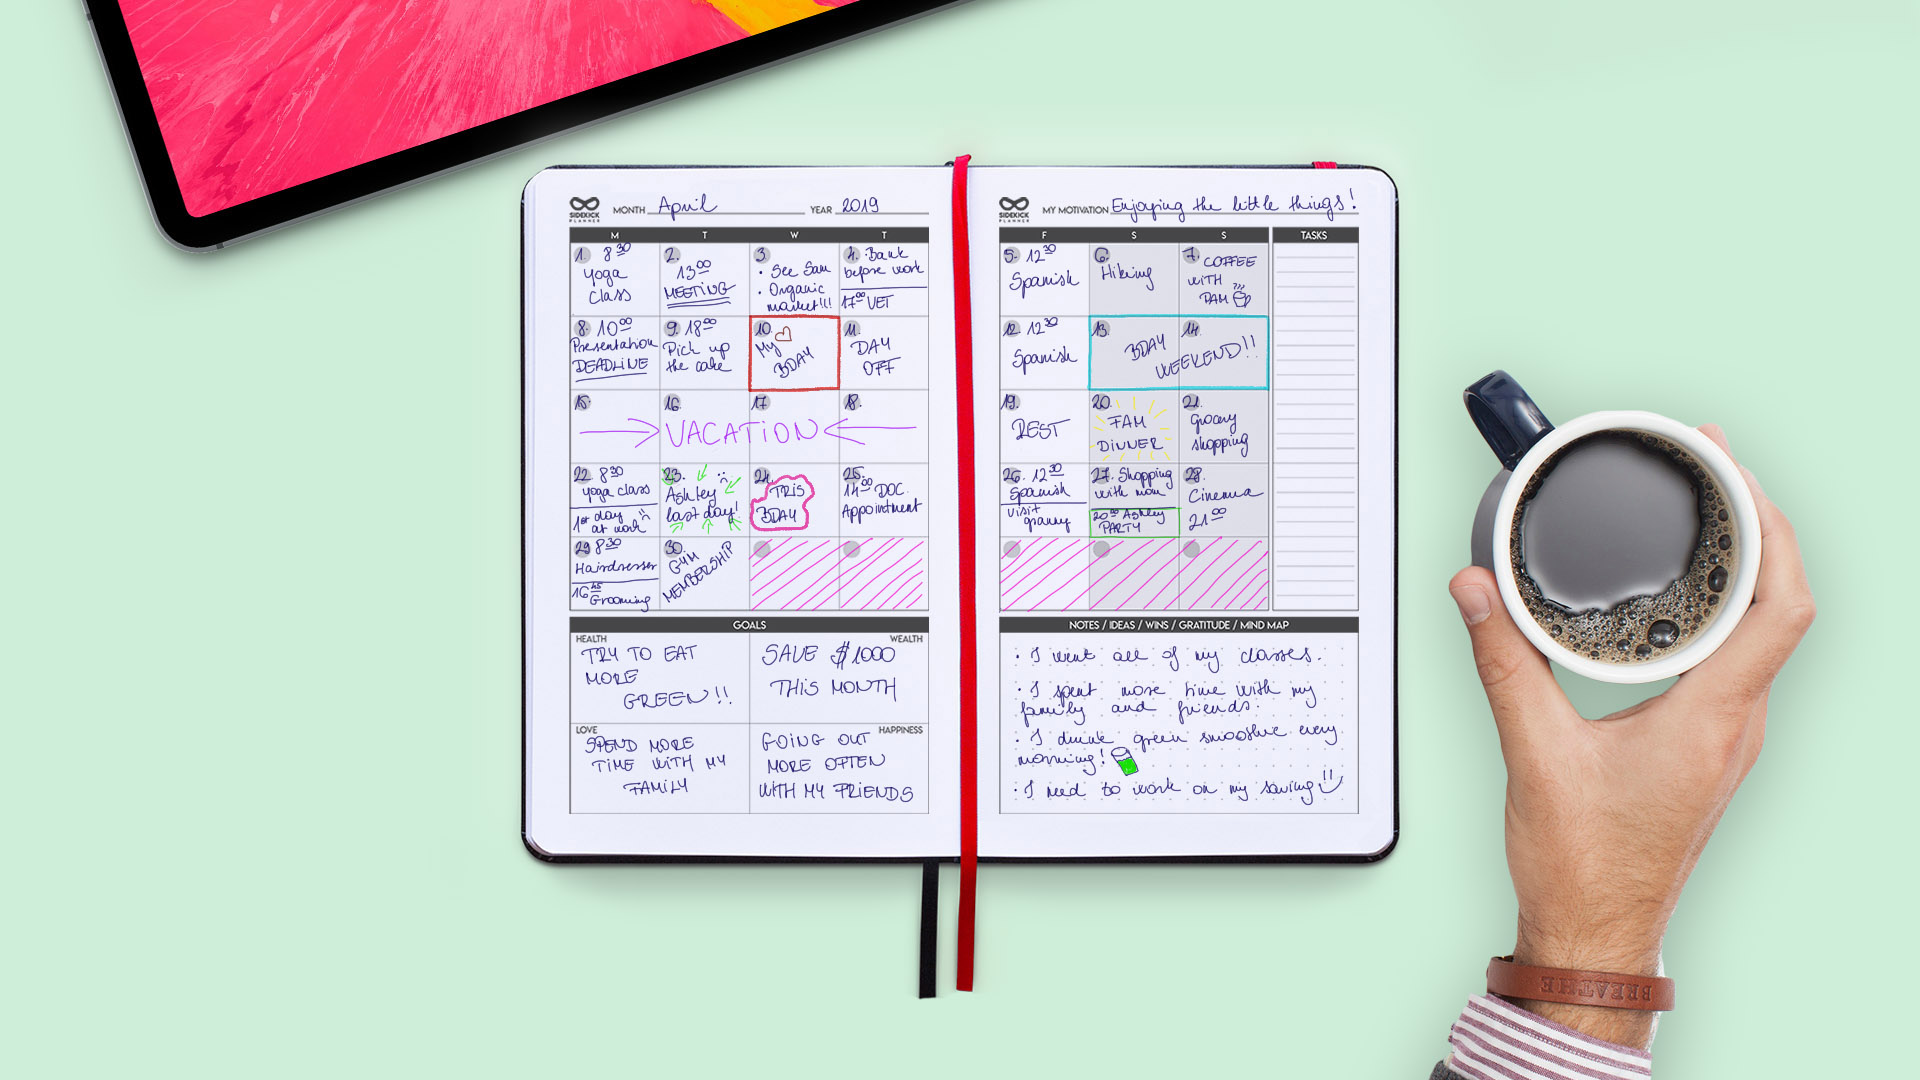 SIDEKICK
PLANNER
MONTH April YEAR 2019
M T W T
1. 8 30
yoga
class
2.
13 00
MEETING
3
• See Sam
• Organic
market!!!
4. • Bank
before work
17 00 VET
8. 10 00
Presentation
DEADLINE
9. 18 00
Pick up
the cake
10.
My
BDAY
11.
DAY
OFF
15. 16. 17 18.
VACATION
22 8 30
yoga class
1st day
at work
23.
Ashley
last day!
24.
TRIS
BDAY
25.
14 00 DOC.
Appointment
29 8 30
Hairdresser
16 45
Grooming
30.
GYM
MEMBERSHIP
GOALS
HEALTH
TRY TO EAT
MORE
GREEN!!
WEALTH
SAVE $1000
THIS MONTH
LOVE
SPEND MORE
TIME WITH MY
FAMILY
HAPPINESS
GOING OUT
MORE OFTEN
WITH MY FRIENDS
SIDEKICK
PLANNER
MY MOTIVATION Enjoying the little things!
F S S TASKS
5. 12 30
Spanish
6.
Hiking
7. COFFEE
WITH
PAM
12. 12 30
Spanish
13. 14.
BDAY
WEEKEND!!
19.
REST
20.
FAM
DINNER
21.
grocery
shopping
26. 12 30
Spanish
visit
granny
27. Shopping
with mom
20 00 Ashley
PARTY
28.
Cinema
21 00
NOTES / IDEAS / WINS / GRATITUDE / MIND MAP
• I went all of my classes.
• I spent more time with my
family and friends.
• I drink green smoothie every
morning!
• I need to work on my saving
BREATHE